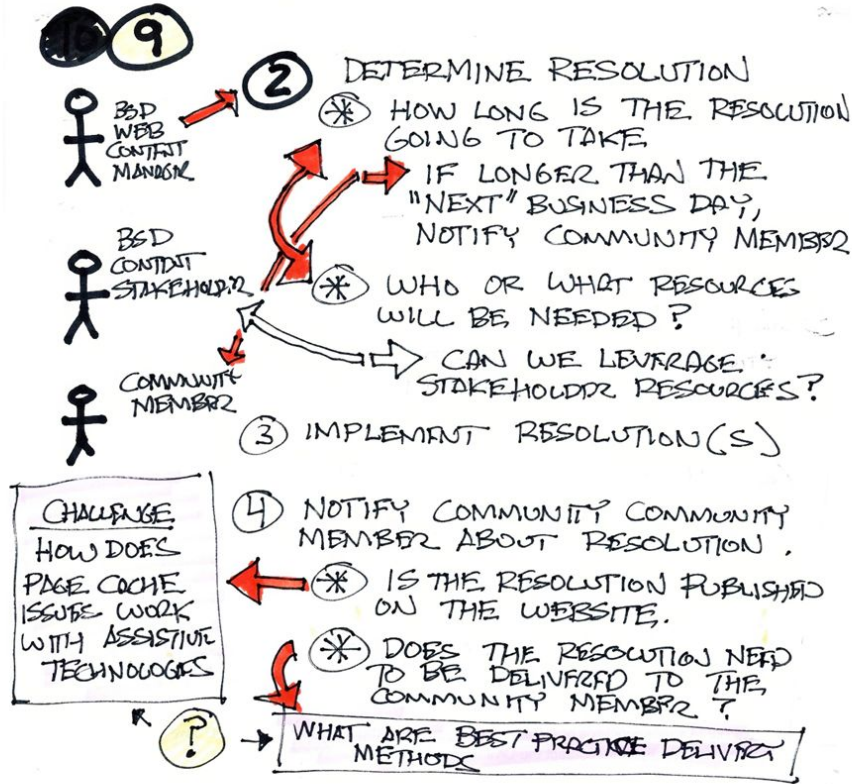 10 9
2 DETERMINE RESOLUTION
BSD
WEB
CONTENT
MANAGER
* HOW LONG IS THE RESOLUTION
GOING TO TAKE
IF LONGER THAN THE
"NEXT" BUSINESS DAY,
NOTIFY COMMUNITY MEMBER
BSD
CONTENT
STAKEHOLDER
* WHO OR WHAT RESOURCES
WILL BE NEEDED?
CAN WE LEVERAGE
STAKEHOLDER RESOURCES?
COMMUNITY
MEMBER
3 IMPLEMENT RESOLUTION(S)
4 NOTIFY COMMUNITY COMMUNITY
MEMBER ABOUT RESOLUTION.
* IS THE RESOLUTION PUBLISHED
ON THE WEBSITE.
* DOES THE RESOLUTION NEED
TO BE DELIVERED TO THE
COMMUNITY MEMBER?
CHALLENGE
HOW DOES
PAGE CACHE
ISSUES WORK
WITH ASSISTIVE
TECHNOLOGIES
?
WHAT ARE BEST PRACTICE DELIVERY
METHODS